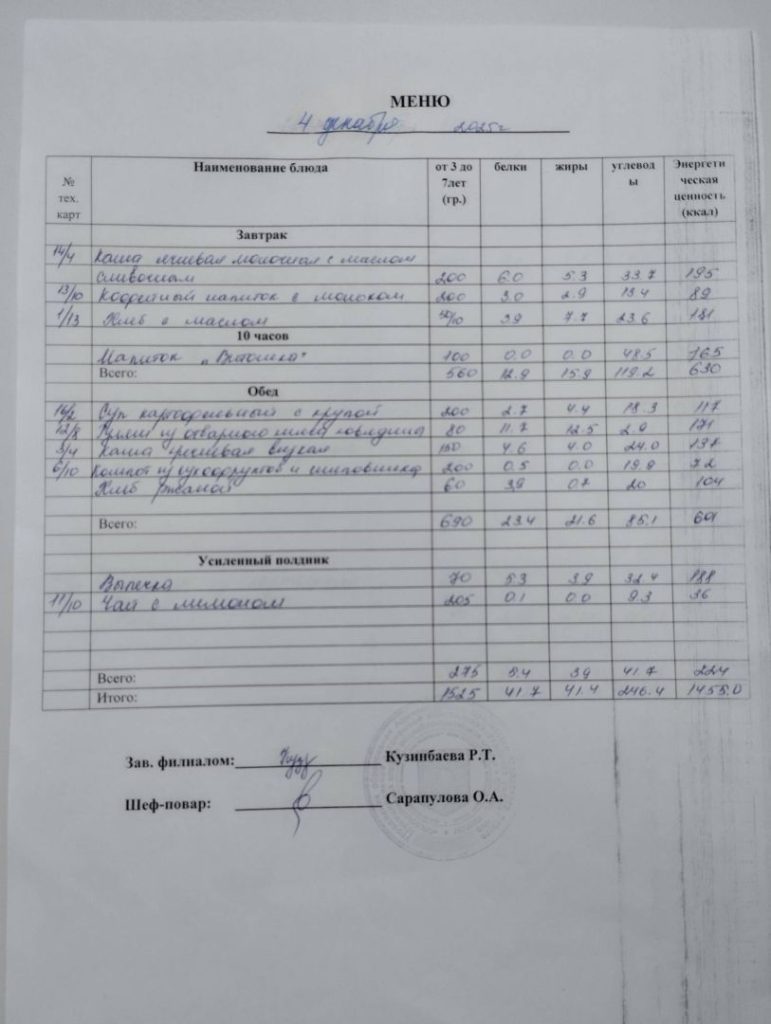 МЕНЮ
4 декабря 2025г
№ тех. карт Наименование блюда от 3 до 7лет (гр.) белки жиры углеводы Энергетическая ценность (ккал)
Завтрак
14/4 Каша ячневая молочная с маслом
сливочным 200 6.0 5.3 33.7 195
13/10 Кофейный напиток с молоком 200 3.0 2.9 13.4 89
1/13 Хлеб с маслом 50/10 3.9 7.7 23.6 181
10 часов
Напиток „Витошка" 100 0.0 0.0 48.5 165
Всего: 560 12.9 15.9 119.2 630
Обед
16/2 Суп картофельный с крупой 200 2.7 4.4 18.3 117
12/8 из отварного мяса говядина 80 11.7 12.5 2.9 171
3/4 Каша гречневая вязкая 150 4.6 4.0 24.0 137
6/10 Компот из сухофруктов и шиповника 200 0.5 0.0 19.9 72
Хлеб ржаной 60 3.9 0.7 20 104
Всего: 690 23.4 21.6 85.1 601
Усиленный полдник
Выпечка 70 5.3 3.9 32.4 188
11/10 Чай с лимоном 205 0.1 0.0 9.3 36
Всего: 275 5.4 3.9 41.7 224
Итого: 1525 41.7 41.4 246.4 1455.0
Зав. филиалом: Кузинбаева Р.Т.
Шеф-повар: Сарапулова О.А.